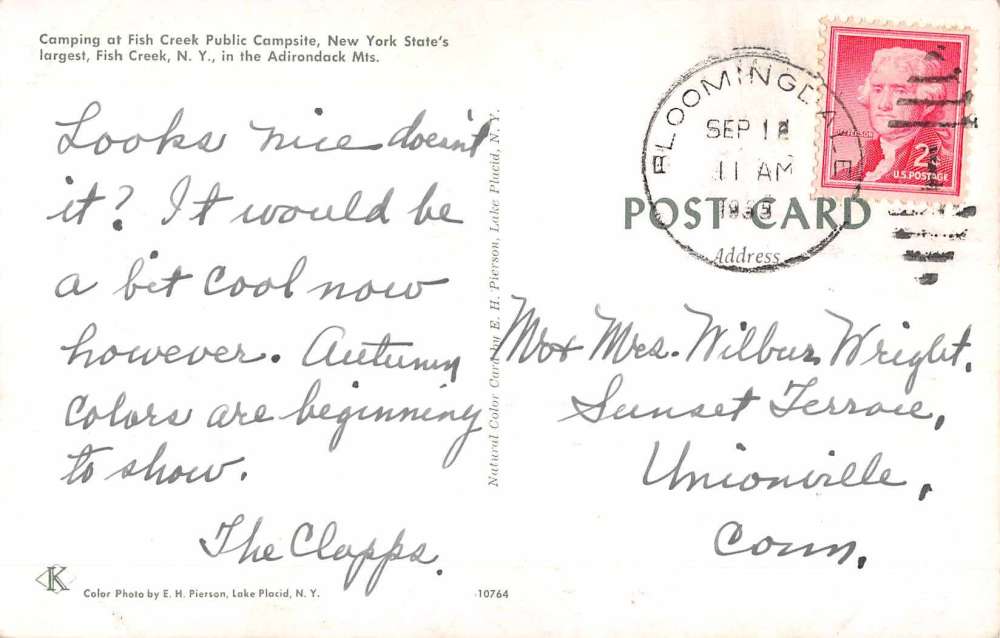 Camping at Fish Creek Public Campsite, New York State's
largest, Fish Creek, N. Y., in the Adirondack Mts.
Looks nice doesn't
it? It would be
a bit cool now
however. Autumn
colors are beginning
to show.
The Clapps.
K
Color Photo by E. H. Pierson, Lake Placid, N. Y.
10764
Natural Color Card by E. H. Pierson, Lake Placid, N. Y.
BLOOMINGDALE
SEP 12
11 AM
JEFFERSON
2¢
U.S. POSTAGE
POST CARD
Address
Mr & Mrs. Wilbur Wright.
Sunset Terrace,
Unionville,
Conn.